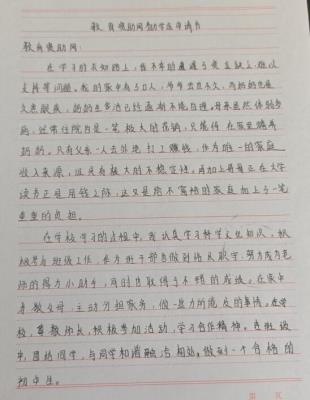 教育援助网助学金申请书
教育援助网:
在学习的求知路上,我不幸的遭遇了贫
支持等问题。我的家中有5口人,爷爷去世不久,而奶奶也
奶奶生活已经逐渐不能自理。母亲虽然体弱多
病,还常住院自是一笔极大的花销,只能待在家里赡养
奶奶。只有父亲一人去外地打工赚钱,作为唯一的家庭
收入来源,这具有极大的不稳定性。再加上哥哥正在大学
读书正是用钱之际,这又是给不富裕的家庭加上了一笔
重重的负担。
在学校学习的过程中,我认真学习科学文化知识,积
极参与班级工作,在为班干部者做到恪尽职守,努力成为老
师的得力小助手,同时也取得了不错的成绩。在家中
孝敬父母,主动分担家务,做一些力所能及的事情。在学
校,尊敬师长,积极参加活动,学习合作精神。在班级
中,团结同学,与同学和谐融洽相处。做到一个合格的
初中生。
第 页